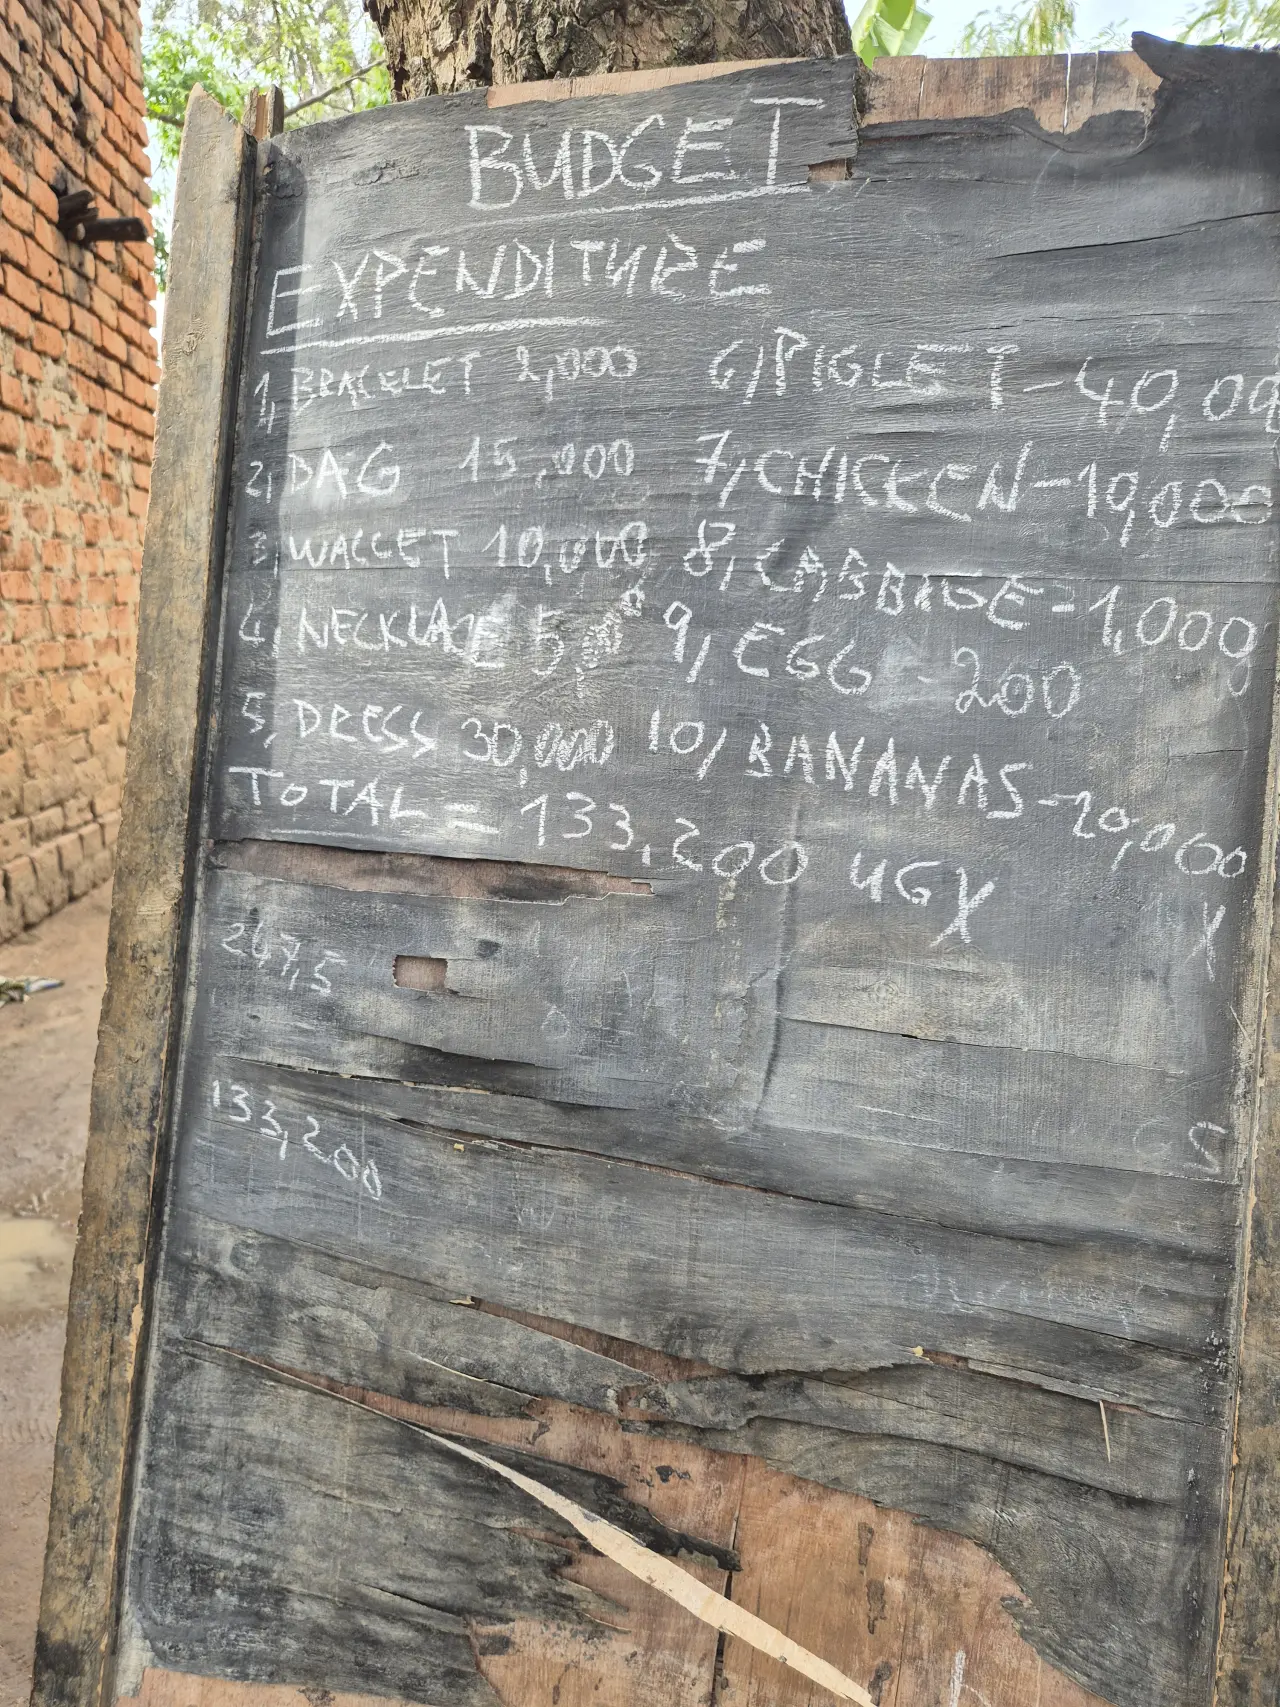 BUDGET
EXPENDITURE
1, BRACELET 2,000
2, DAG 15,000
3, WALLET 10,000
4, NECKLACE 5,000
5, DRESS 30,000
6, PIGLET - 40,00
7, CHICKEN - 10,000
8, CABBAGE = 1,000
9, EGG - 200
10, BANANAS - 20,000
TOTAL = 133,200 UGX
247,5
133,200